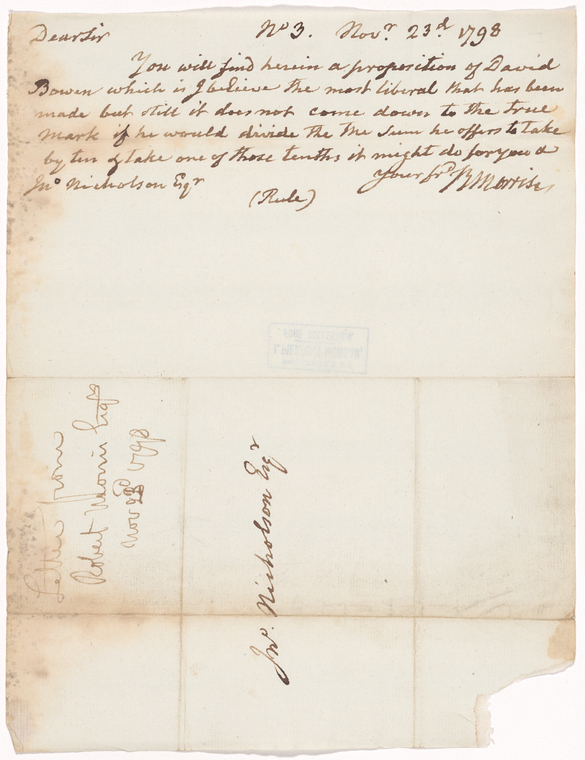 Dear Sir No 3. Novr. 23d. 1798
You will find herein a proposition of David
Bowen which is I believe the most liberal that has been
made but still it does not come down to the true
mark if he would divide the the sum he offers to take
by ten & take one of those tenths it might do for you &
Jno Nicholson Esqr Your Sr. R Morris
(Rule)
Letter from
Robert Morris Esqr
Nov 23d 1798
Jno. Nicholson Esqr